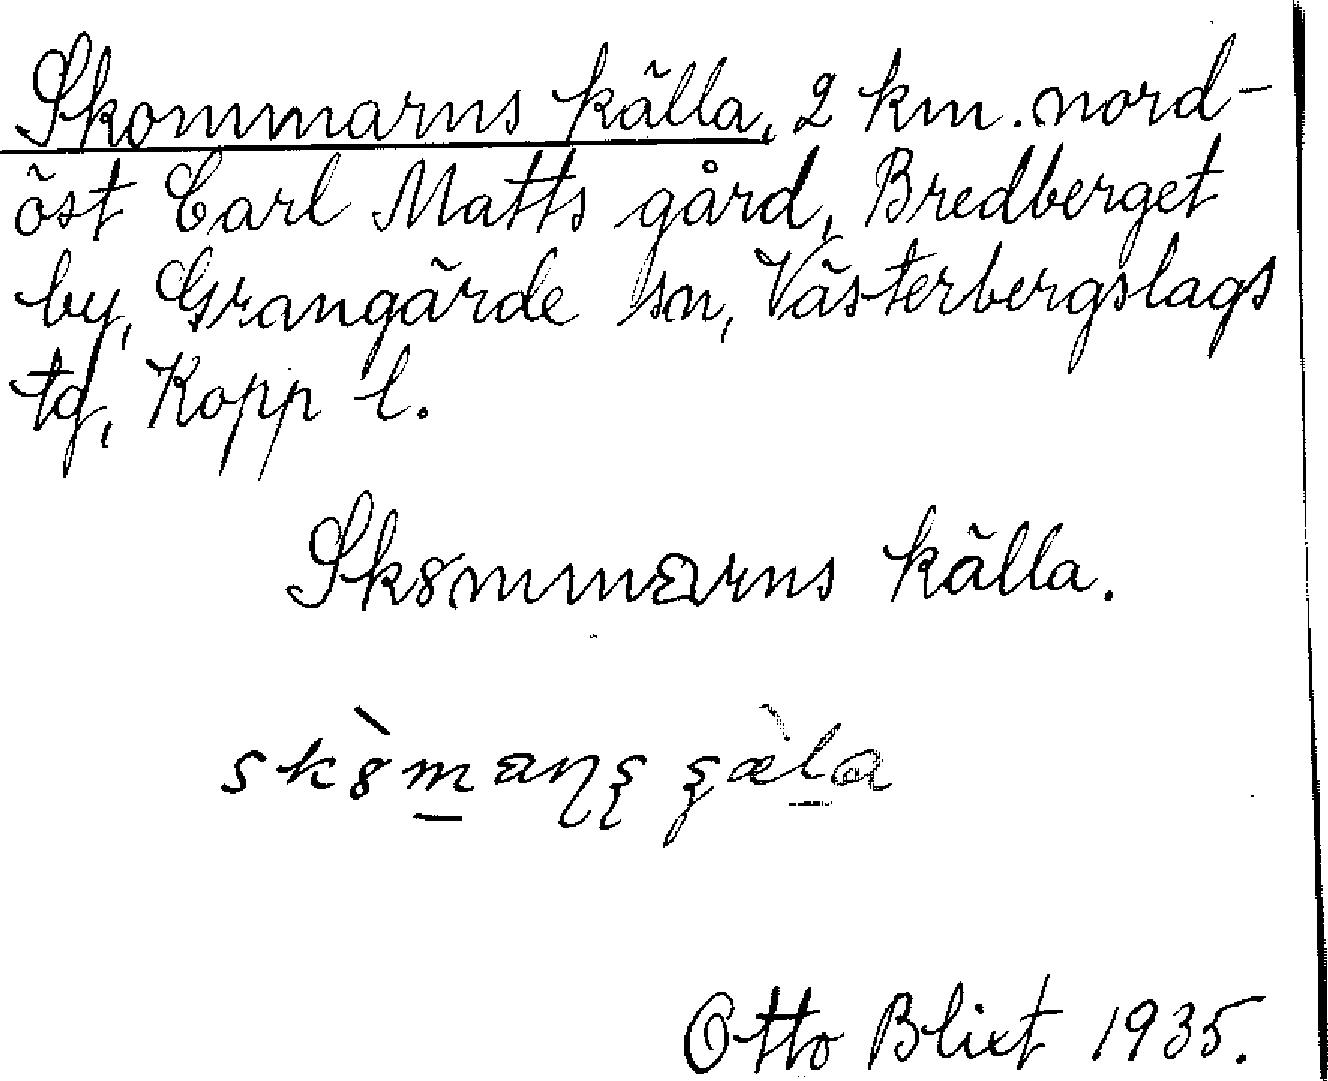 Skommarns källa, 2 km. nord-
öst Carl Matts gård, Bredberget
by, Grangärde sn, Västerbergslags
tg, Kopp l.
Sk8mmarns källa.
Otto Blixt 1935.